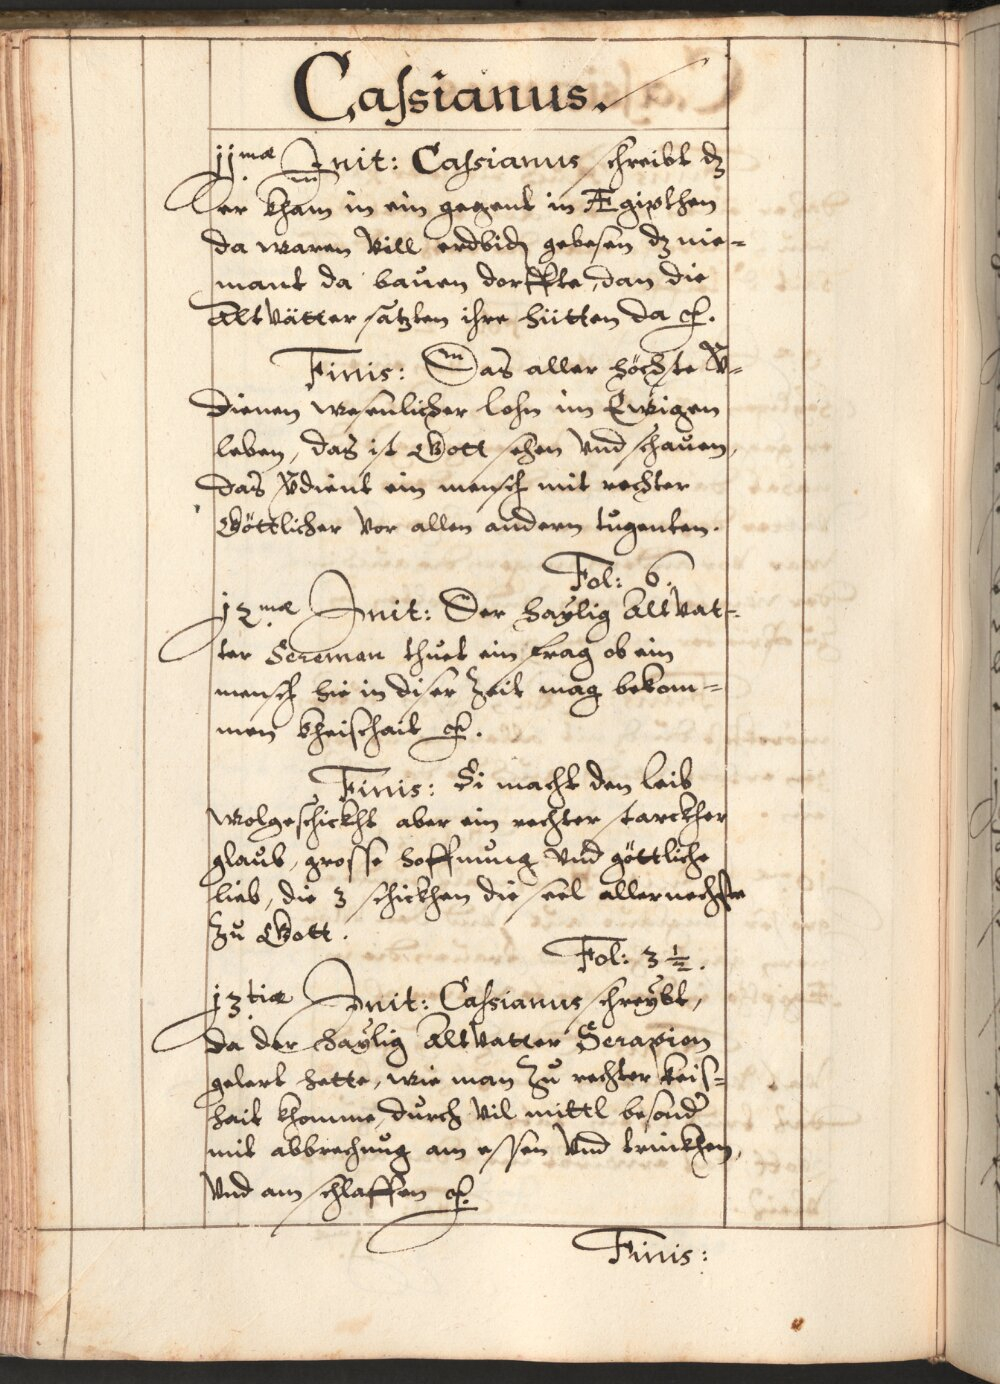 Cassianus.
11mæ Init: Cassianus schreibt dz
er kham in ein gegent in Ægipthen
da waren vill erdbidn gebesen dz nie-
mant da bauen dorffte, dan die
Altvätter satzten ihre hütten da
Finis: Das aller höchste v̈-
dienen wesenlicher lohn im Ewigen
leben, das ist Gott sehen vnd schauen,
das v̈dient ein mensch mit rechter
Göttlicher vor allen andern tugenten.
Fol: 6.
12mæ Init: Der haÿlig Altvat-
ter Seremon thuet ein frag ob ein
mensch hie in diser Zeit mag bekom-
men kheischait
Finis: Si macht den leib
wolgeschickht aber ein rechter starckher
glaub, grosse hoffnung vnd göttliche
lieb, die 3 schickhen die seel allernechste
Zu Gott.
Fol: 3 1/2.
13tiæ Init: Cassianus schreÿbt,
da der haÿlig Altvatter Serapion
gelert hette, wie man Zu rechter keisch-
hait khomme, durch vil mittl besonder
mit abbrechung am essen vnd trinckhen,
vnd am schlaffen
Finis: